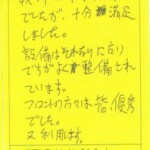 でしたが、十分満足
しました。
設備はそれなりに古り
ですがよく整備され
ています。
フロントの方々は皆優秀
でした。
又利用